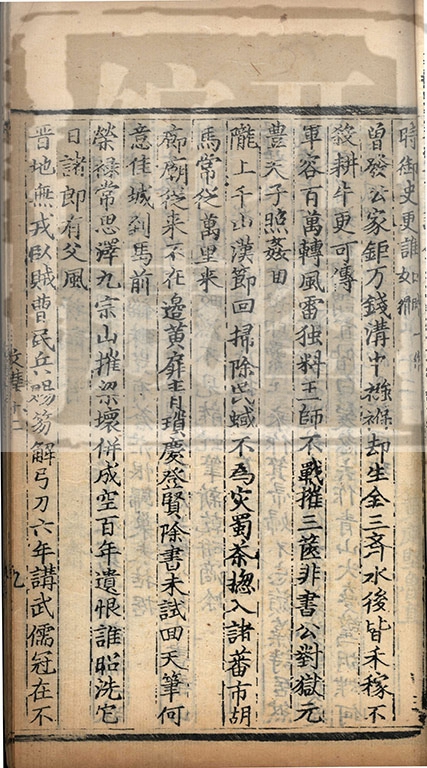 時御史更誰如
曽發公家鉅万錢溝中襁褓却生金三斉水後皆禾稼不
殺耕牛更可傳
軍容百萬轉風雷独料王師不戰摧三篋非書公對獄元
豊天子照姦田
隴上千山漢節回掃除民蜮不爲灾蜀茶揔入諸蕃市胡
馬常從萬里来
廊廟從来不在邉黄扉青瑣慶登賢除書未試田天筆何
意佳城到馬前
榮祿常思澤九宗山摧梁壞併成空百年遺恨誰昭洗它
日諸郎有父風
晋地無戎臥賊曹民兵賜笏解弓刀六年講武儒冠在不